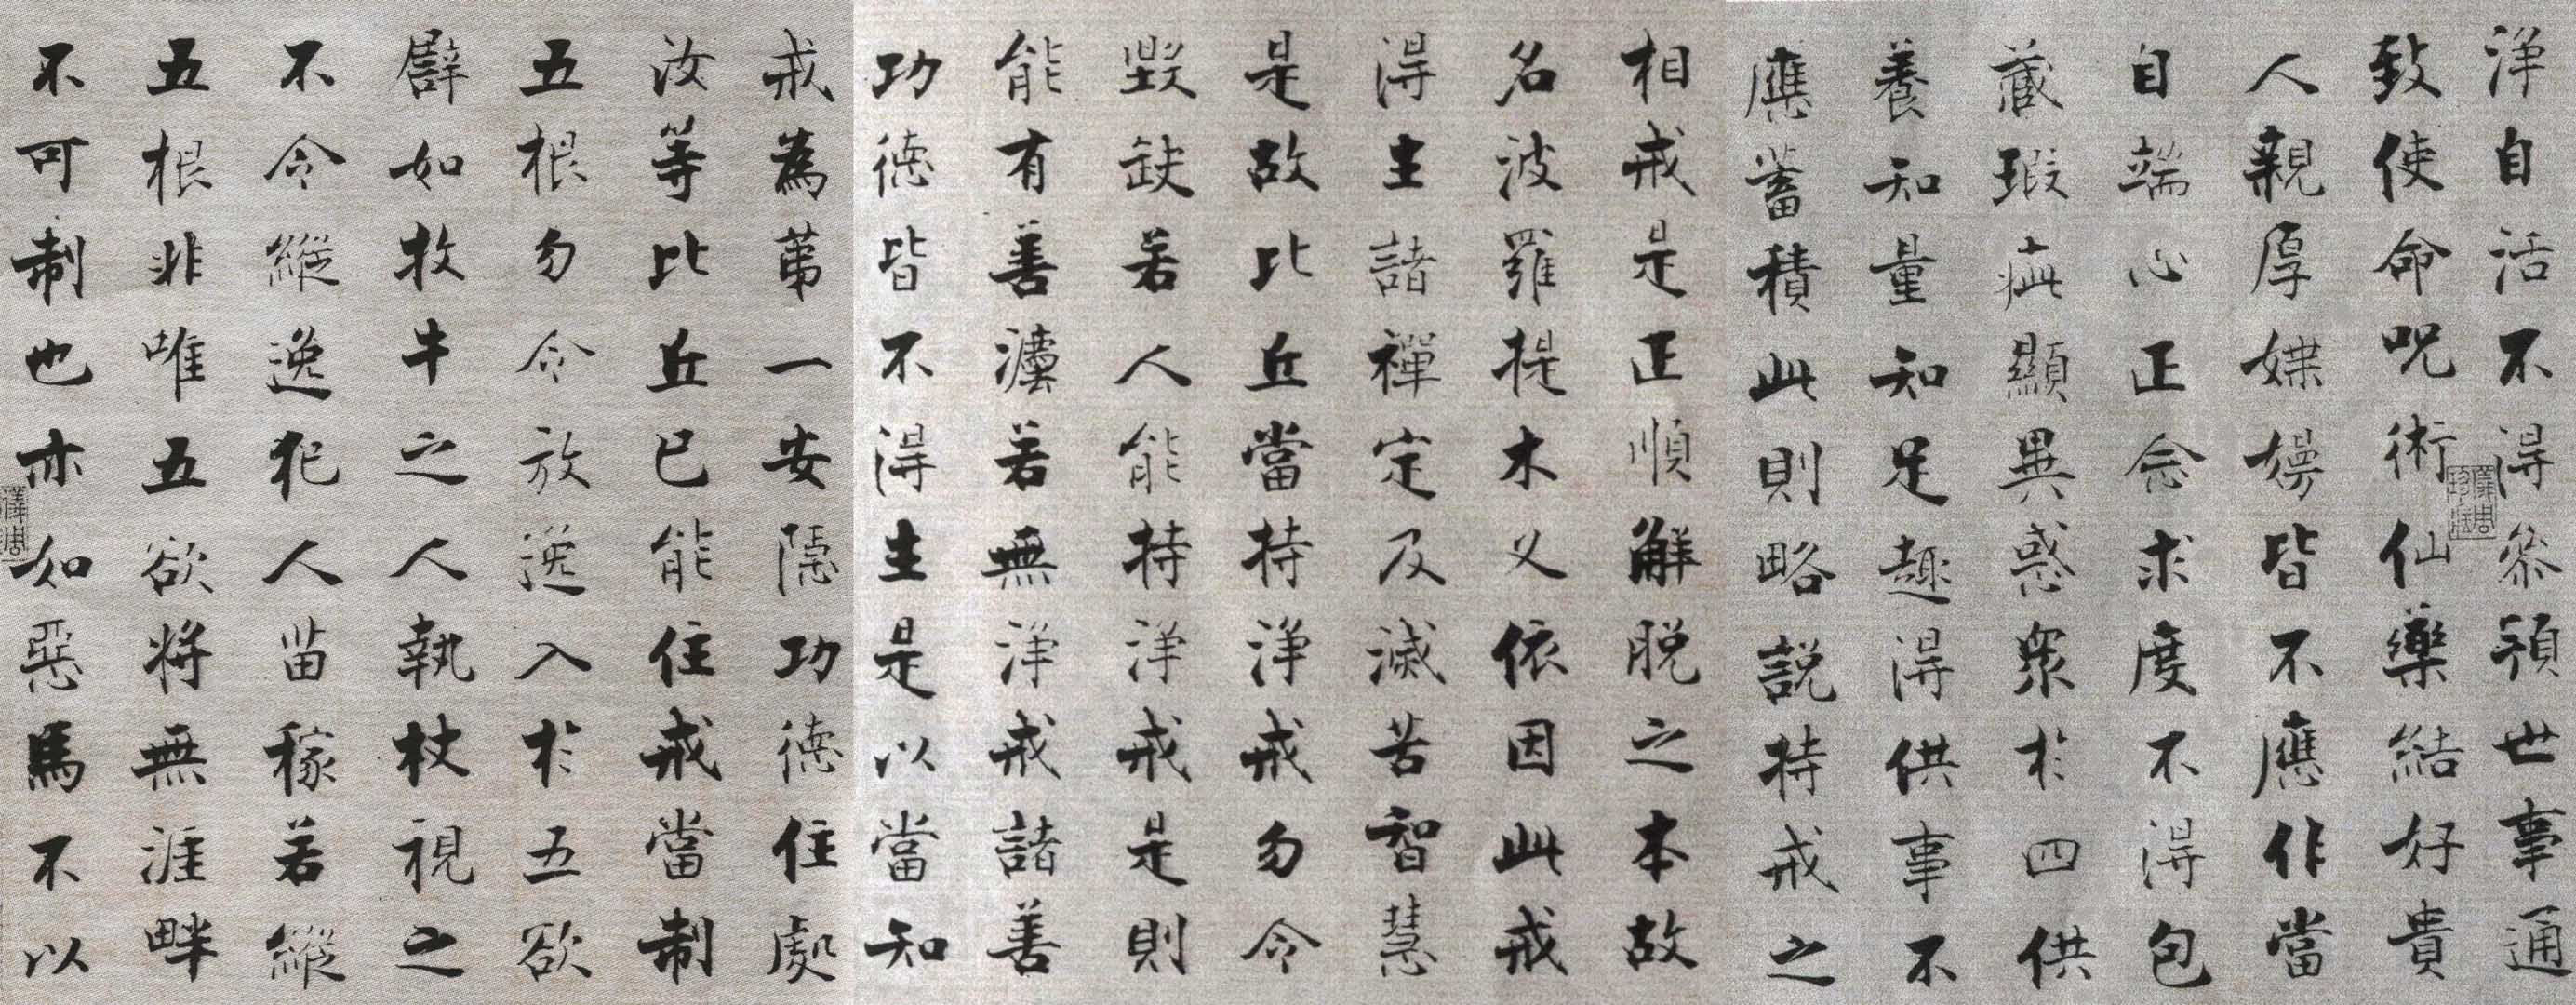 淨自活不得参預世事通
致使命呪術仙藥結好貴
人親厚媟嫚皆不應作當
自端心正念求度不得包
藏瑕疵顯異惑衆於四供
養知量知足趣得供事不
應蓄積此則略説持戒之
相戒是正順解脱之本故
名波羅提木义依因此戒
得生諸禪定及滅苦智慧
是故比丘當持淨戒勿令
毀缺若人能持淨戒是則
能有善灋若無淨戒諸善
功德皆不得生是以當知
戒為第一安隱功德住處
汝等比丘已能住戒當制
五根勿令放逸入於五欲
譬如牧牛之人執杖視之
不令縱逸犯人苗稼若縱
五根非唯五欲將無涯畔
不可制也亦如惡馬不以